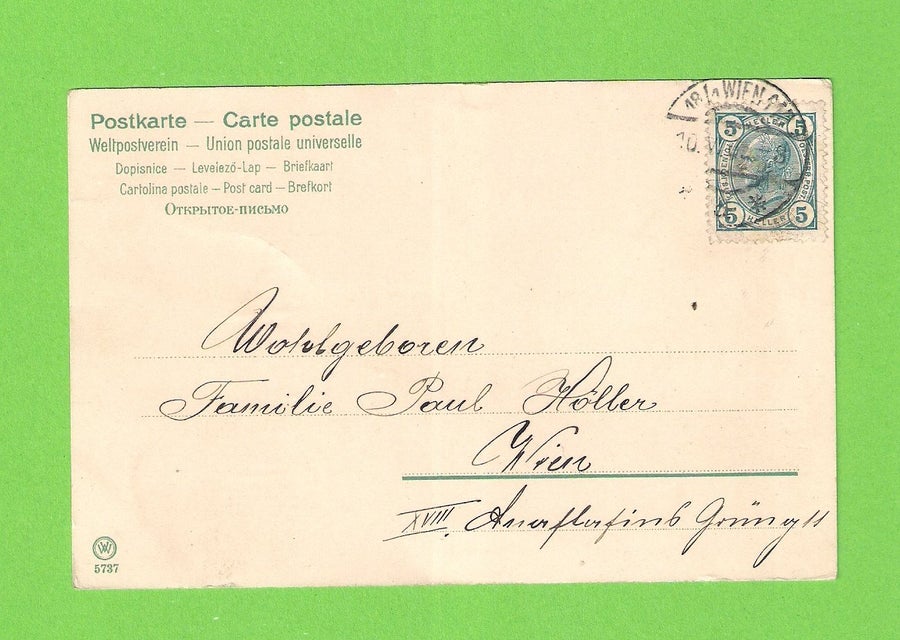 Postkarte — Carte postale
Weltpostverein — Union postale universelle
Dopisnice — Levelező-Lap — Briefkaart
Cartolina postale — Post card — Brefkort
Открытое-письмо
WIEN
5 HELLER 5
5 HELLER 5
Wohlgeboren
Familie Paul Höller
Wien
XVIII. Anastasius Grüng
5737